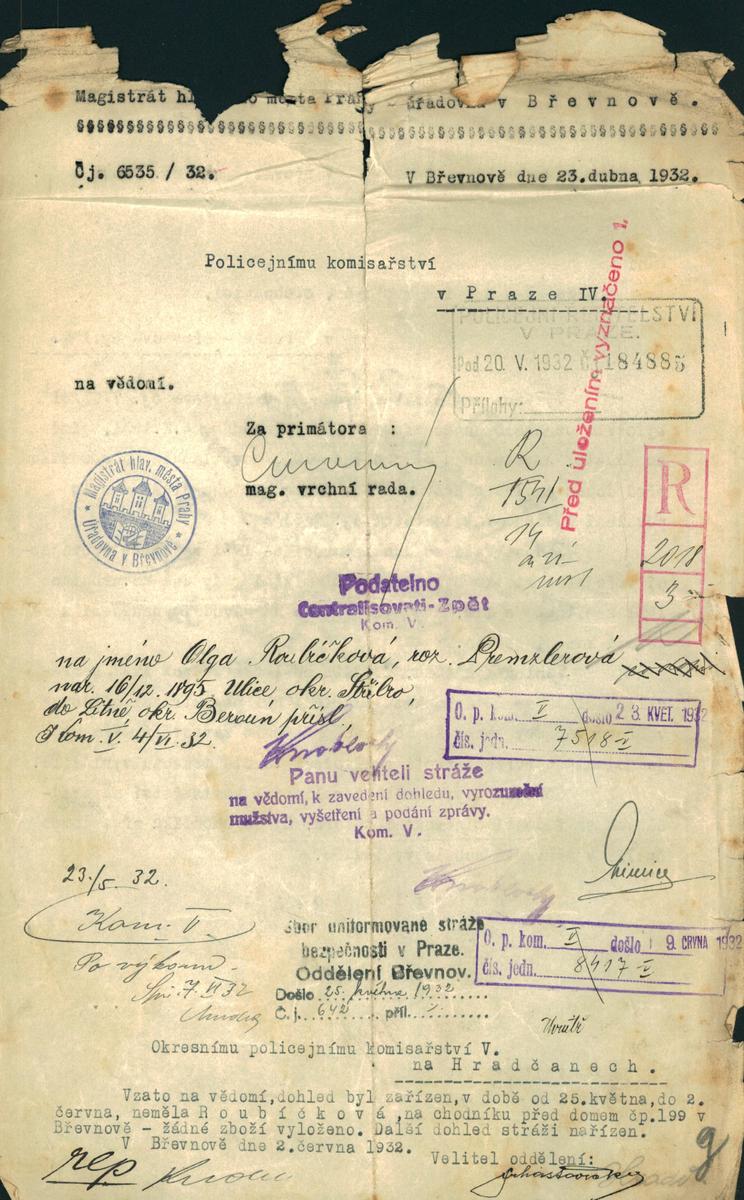 Magistrát hl o města Prahy - úřadovna v Břevnově.
§§§§§§§§§§§§§§§§§§§§§§§§§§§§§§§§§§§§§§§§§§§§§§§§§§§§§§§§§§§
Čj. 6535 / 32.
V Břevnově dne 23.dubna 1932.
Policejnímu komisařství
v Praze IV.
POLICEJNÍ ŘEDITELSTVÍ
V PRAZE.
Pod. 20. V. 1932 Č. 184885
Přílohy:
Před uložením vyznačeno 1.
na vědomí.
Za primátora :
mag. vrchní rada.
Magistrát hlav. města Prahy
Úřadovna v Břevnově
R
1541
14
R
2018
3
Podatelno
Centralisovati-Zpět
Kom. V.
na jméno Olga Roubíčková, roz. Premzlerová
nar. 16/12. 1895 Ulice okr. Stříbro,
do Litně, okr. Beroun přísl.
Kom. V. 4/VI. 32.
O. p. kom. V došlo 23. KVĚT. 1932
čís. jedn. 7518-V
Panu veliteli stráže
na vědomí, k zavedení dohledu, vyrozumění
mužstva, vyšetření a podání zprávy.
Kom. V.
23./5. 32.
Kom. V
Po výkonu
7. VI 32
Sbor uniformované stráže
bezpečnosti v Praze.
Oddělení Břevnov.
Došlo 25. května 1932
Č.j. 642 příl.
O. p. kom. V došlo 9. ČRVNA 1932
čís. jedn. 8417-V
Okresnímu policejnímu komisařství V.
na Hradčanech.
Vzato na vědomí,dohled byl zařízen,v době od 25.května,do 2.
června, neměla R o u b í č k o v á ,na chodníku před domem čp.199 v
Břevnově - žádné zboží vyloženo. Další dohled stráži nařízen.
V Břevnově dne 2.června 1932.
Velitel oddělení:
rep
g